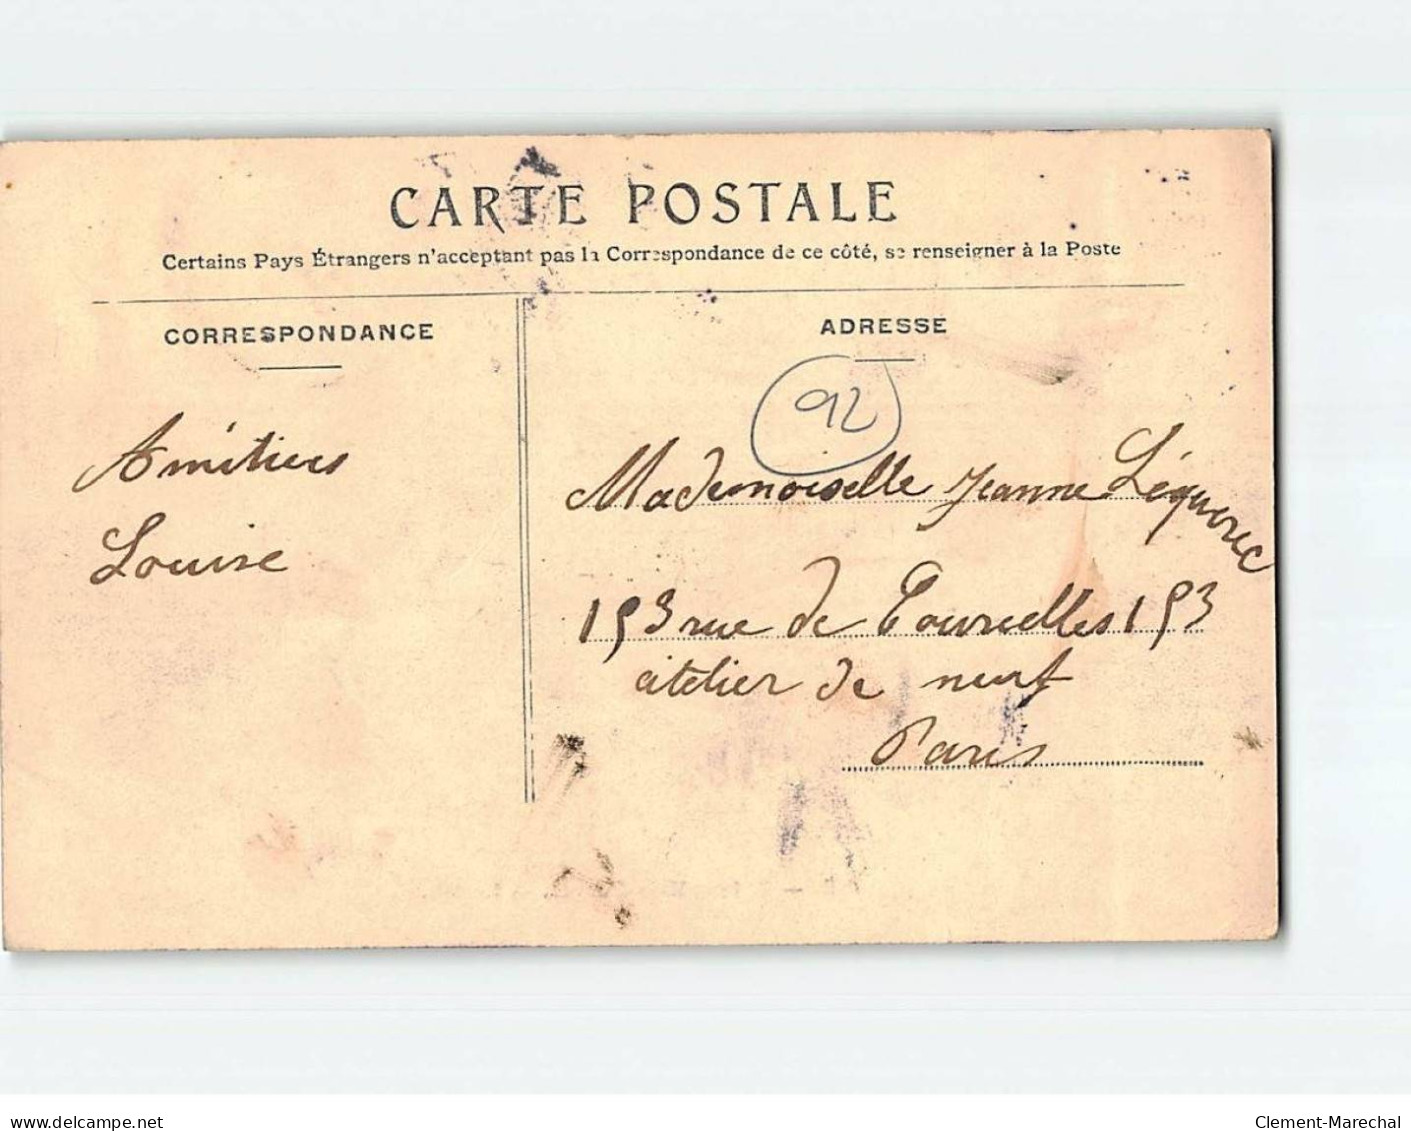 CARTE POSTALE
Certains Pays Étrangers n'acceptant pas la Correspondance de ce côté, se renseigner à la Poste
CORRESPONDANCE
Amitiers
Louise
ADRESSE
92
Mademoiselle Jeanne Léquerec
153 rue de Courcelles 153
atelier de neuf
Paris
www.delcampe.net
Clement-Marechal